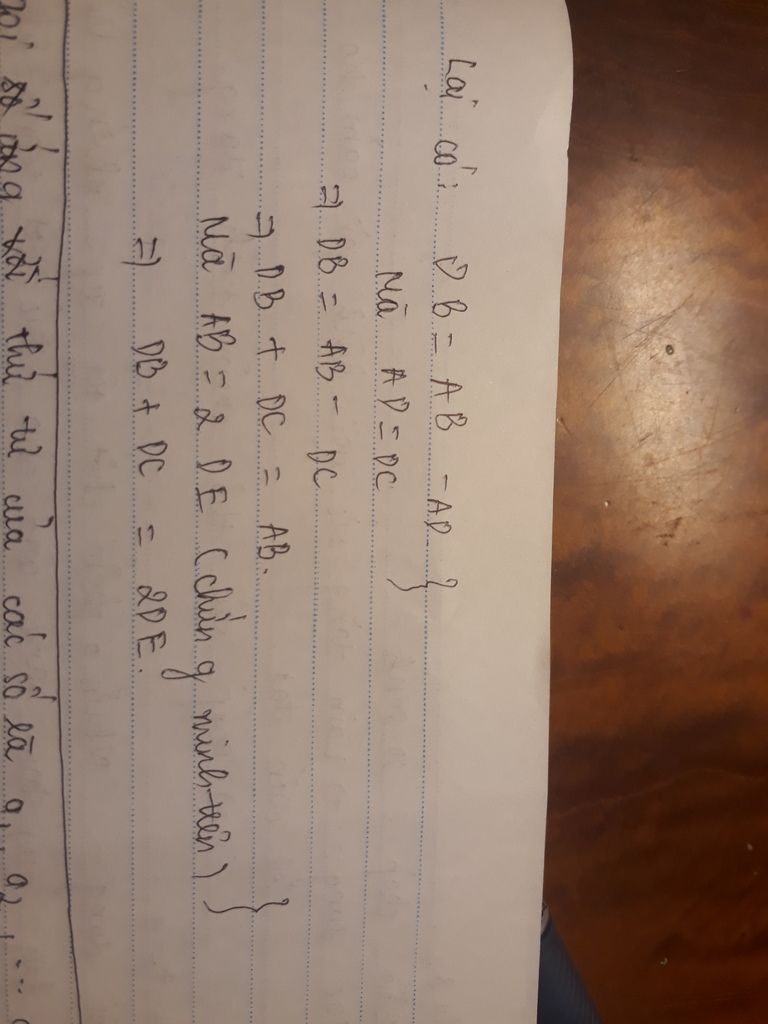 Lại có: DB = AB - AD }
Mà AD = DC }
=> DB = AB - DC
=> DB + DC = AB. }
Mà AB = 2 DE (chứng minh trên) }
=> DB + DC = 2DE.
số thứ tự của các số là a1, a2, ...